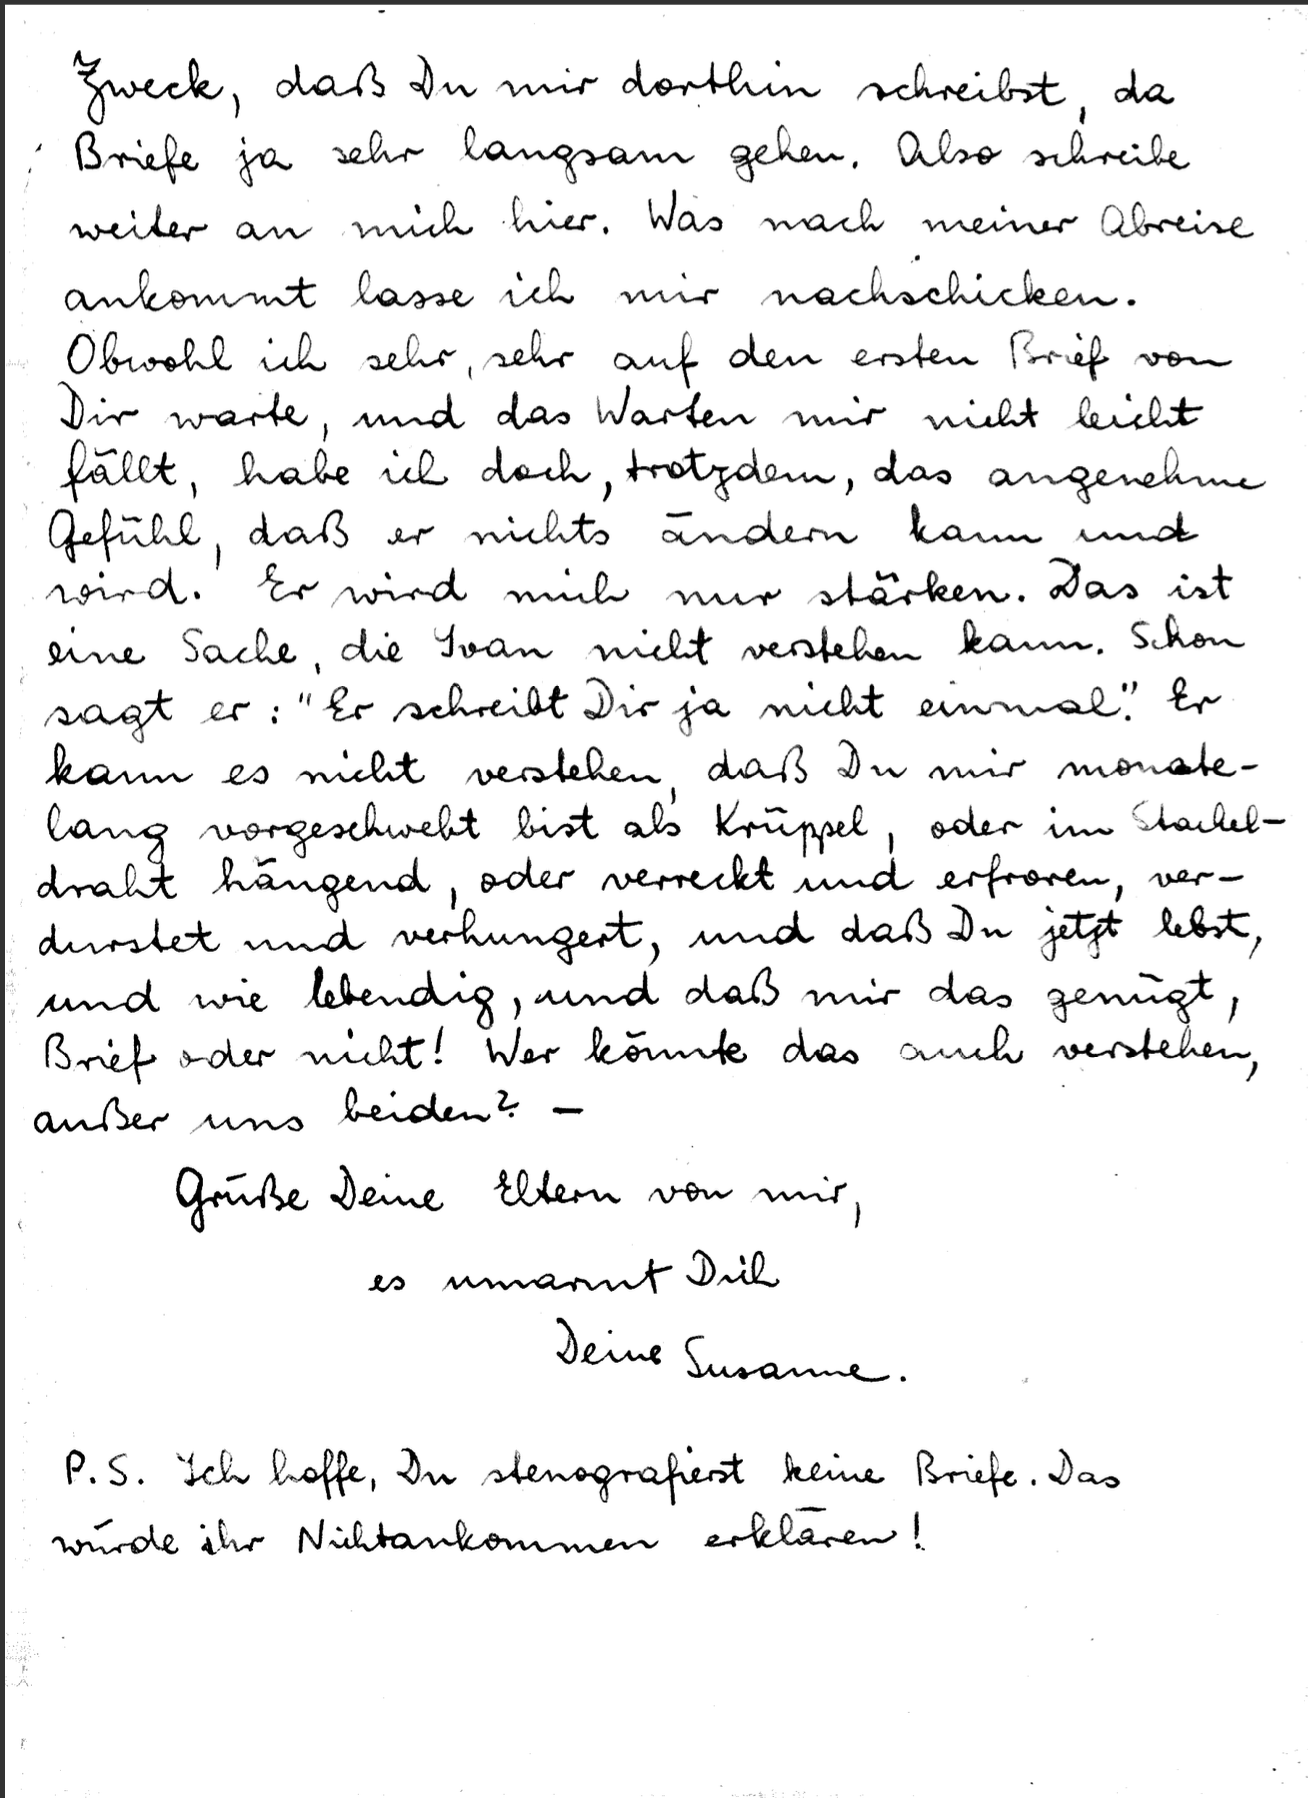 Zweck, daß Du mir dorthin schreibst, da
Briefe ja sehr langsam gehen. Also schreibe
weiter an mich hier. Was nach meiner Abreise
ankommt lasse ich mir nachschicken.
Obwohl ich sehr, sehr auf den ersten Brief von
Dir warte, und das Warten mir nicht leicht
fällt, habe ich doch, trotzdem, das angenehme
Gefühl, daß er nichts ändern kann und
wird. Er wird mich nur stärken. Das ist
eine Sache, die Ivan nicht verstehen kann. Schon
sagt er: "Er schreibt Dir ja nicht einmal." Er
kann es nicht verstehen, daß Du mir monate-
lang vorgeschwebt bist als Krüppel, oder im Stachel-
draht hängend, oder verreckt und erfroren, ver-
durstet und verhungert, und daß Du jetzt lebst,
und wie lebendig, und daß mir das genügt,
Brief oder nicht! Wer könnte das auch verstehen,
außer uns beiden? –
Grüße Deine Eltern von mir,
es umarmt Dich
Deine Susanne.
P.S. Ich hoffe, Du stenografierst keine Briefe. Das
würde ihr Nichtankommen erklären!